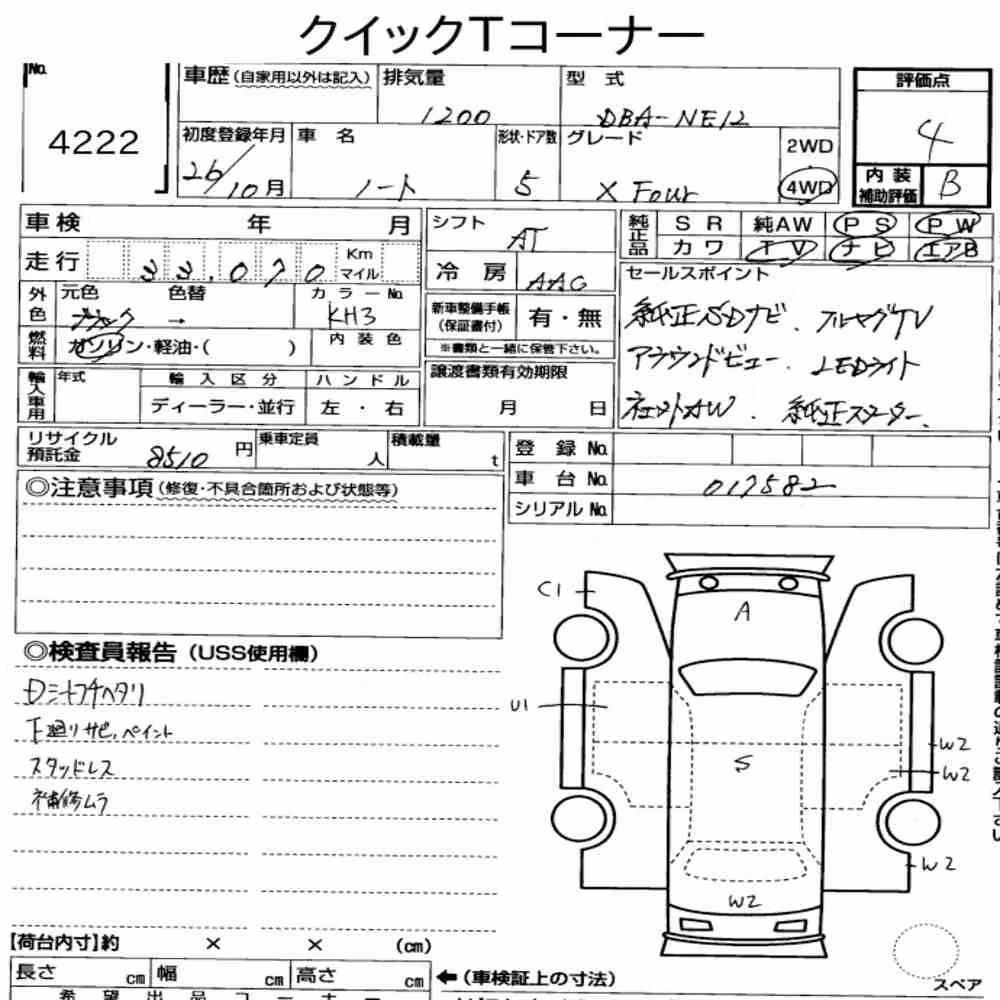 クイックTコーナー
No.
4222
車歴(自家用以外は記入)
排気量
1200
型 式
DBA-NE12
評価点
4
初度登録年月
26/10月
車 名
ノート
形状・ドア数
5
グレード
X Four
2WD
4WD
内 装
補助評価
B
車検 年 月
走行 33,070 Km マイル
外色
元色 色替
ブラック →
カラーNo.
KH3
燃料
ガソリン・軽油・( )
内 装 色
輸入車用
年式
輸 入 区 分
ディーラー・並行
ハ ン ド ル
左 ・ 右
シフト
AT
冷 房
AAC
新車整備手帳
(保証書付)
有・無
※書類と一緒に保管下さい。
譲渡書類有効期限
月 日
純正品
S R 純AW P S P W
カ ワ T V ナ ビ エアB
セールスポイント
純正SDナビ、フルセグTV
アラウンドビュー、LEDライト
社外AW、純正スターター、
リサイクル
預託金
8510 円
乗車定員
人
積載量
t
登 録 No.
車 台 No.
017582
シリアル No.
◎注意事項(修復・不具合箇所および状態等)
◎検査員報告(USS使用欄)
Dシートフチヘタリ
下廻りサビ,ペイント
スタッドレス
補修ムラ
C1
A
U1
S
W2
W2
W2
W2
【荷台内寸】約 × × (cm)
長さ cm 幅 cm 高さ cm
←(車検証上の寸法)
スペア
希 望 出 品 コ ー ナ ー